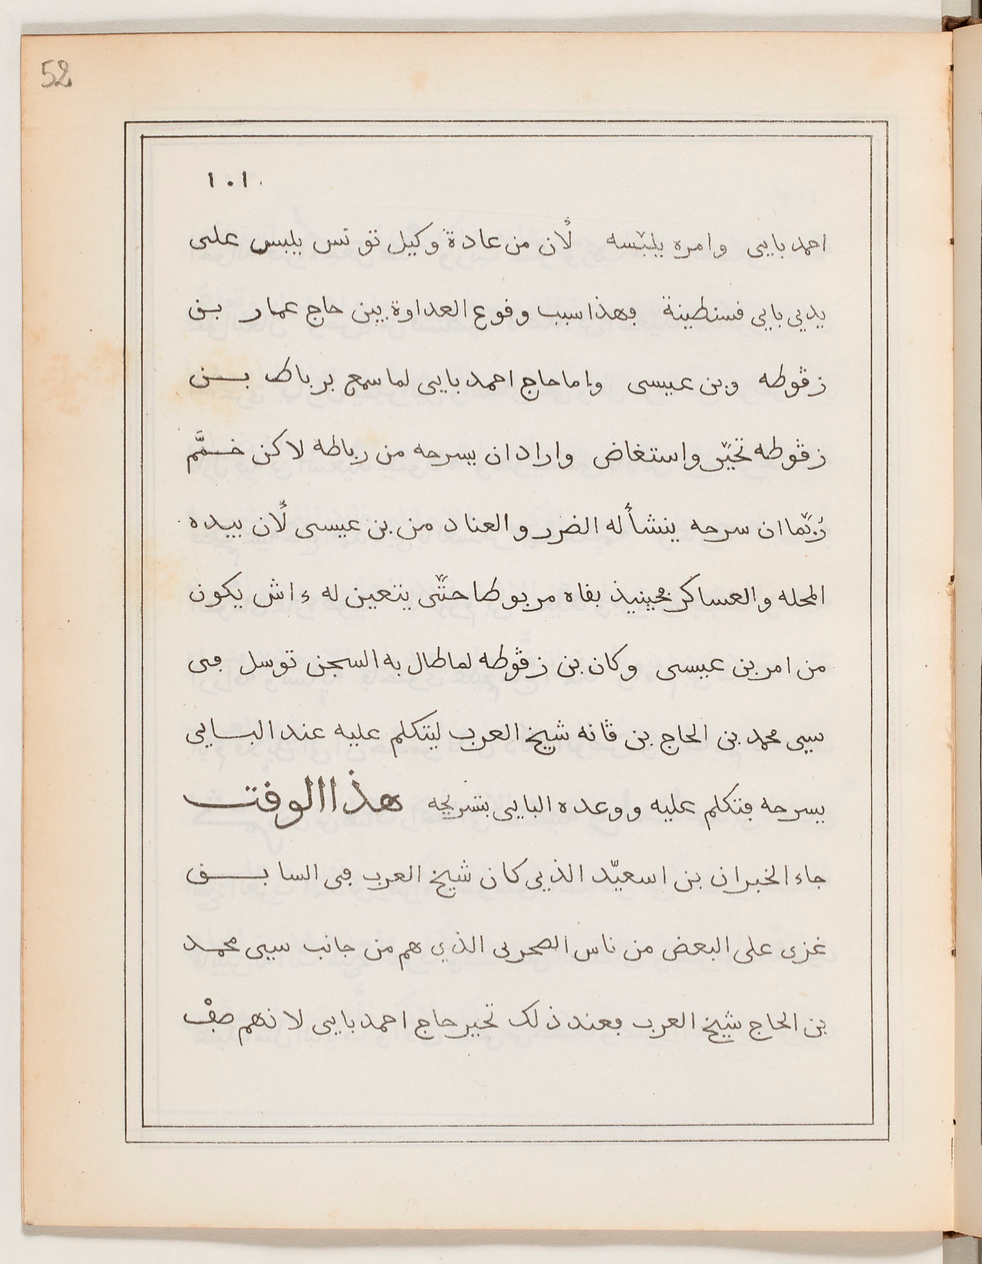 52
١٠١
احمد بايى وامره يلبّسه لأن من عادة وكيل تونس يلبس على
يديى بايى قسنطينة فهذا سبب وقوع العداوة بين حاج عمار بن
زڨوطه وبن عيسى واما حاج احمد بايى لما سمع برباط بن
زڨوطه تحيّر واستغاض واراد ان يسرحه من رباطه لاكن خمّم
رُبّما ان سرحه ينشأ له الضرر والعناد من بن عيسى لأن بيده
المحله والعساكر فحينيذ بقاه مربوطا حتّى يتعين له ءاش يكون
من امر بن عيسى وكان بن زڨوطه لما طال به السجن توسل فى
سيى محمد بن الحاج بن ڨانه شيخ العرب ليتكلم عليه عند البايى
يسرحه فتكلم عليه ووعده البايى بتسريحه هذا الوقت
جاء الخبر ان بن اسعيّد الذيى كان شيخ العرب فى السابق
غزى على البعض من ناس الصحرى الذي هم من جانب سيى محمد
بن الحاج شيخ العرب فعند ذلك تحير حاج احمد بايى لانهم صفْ